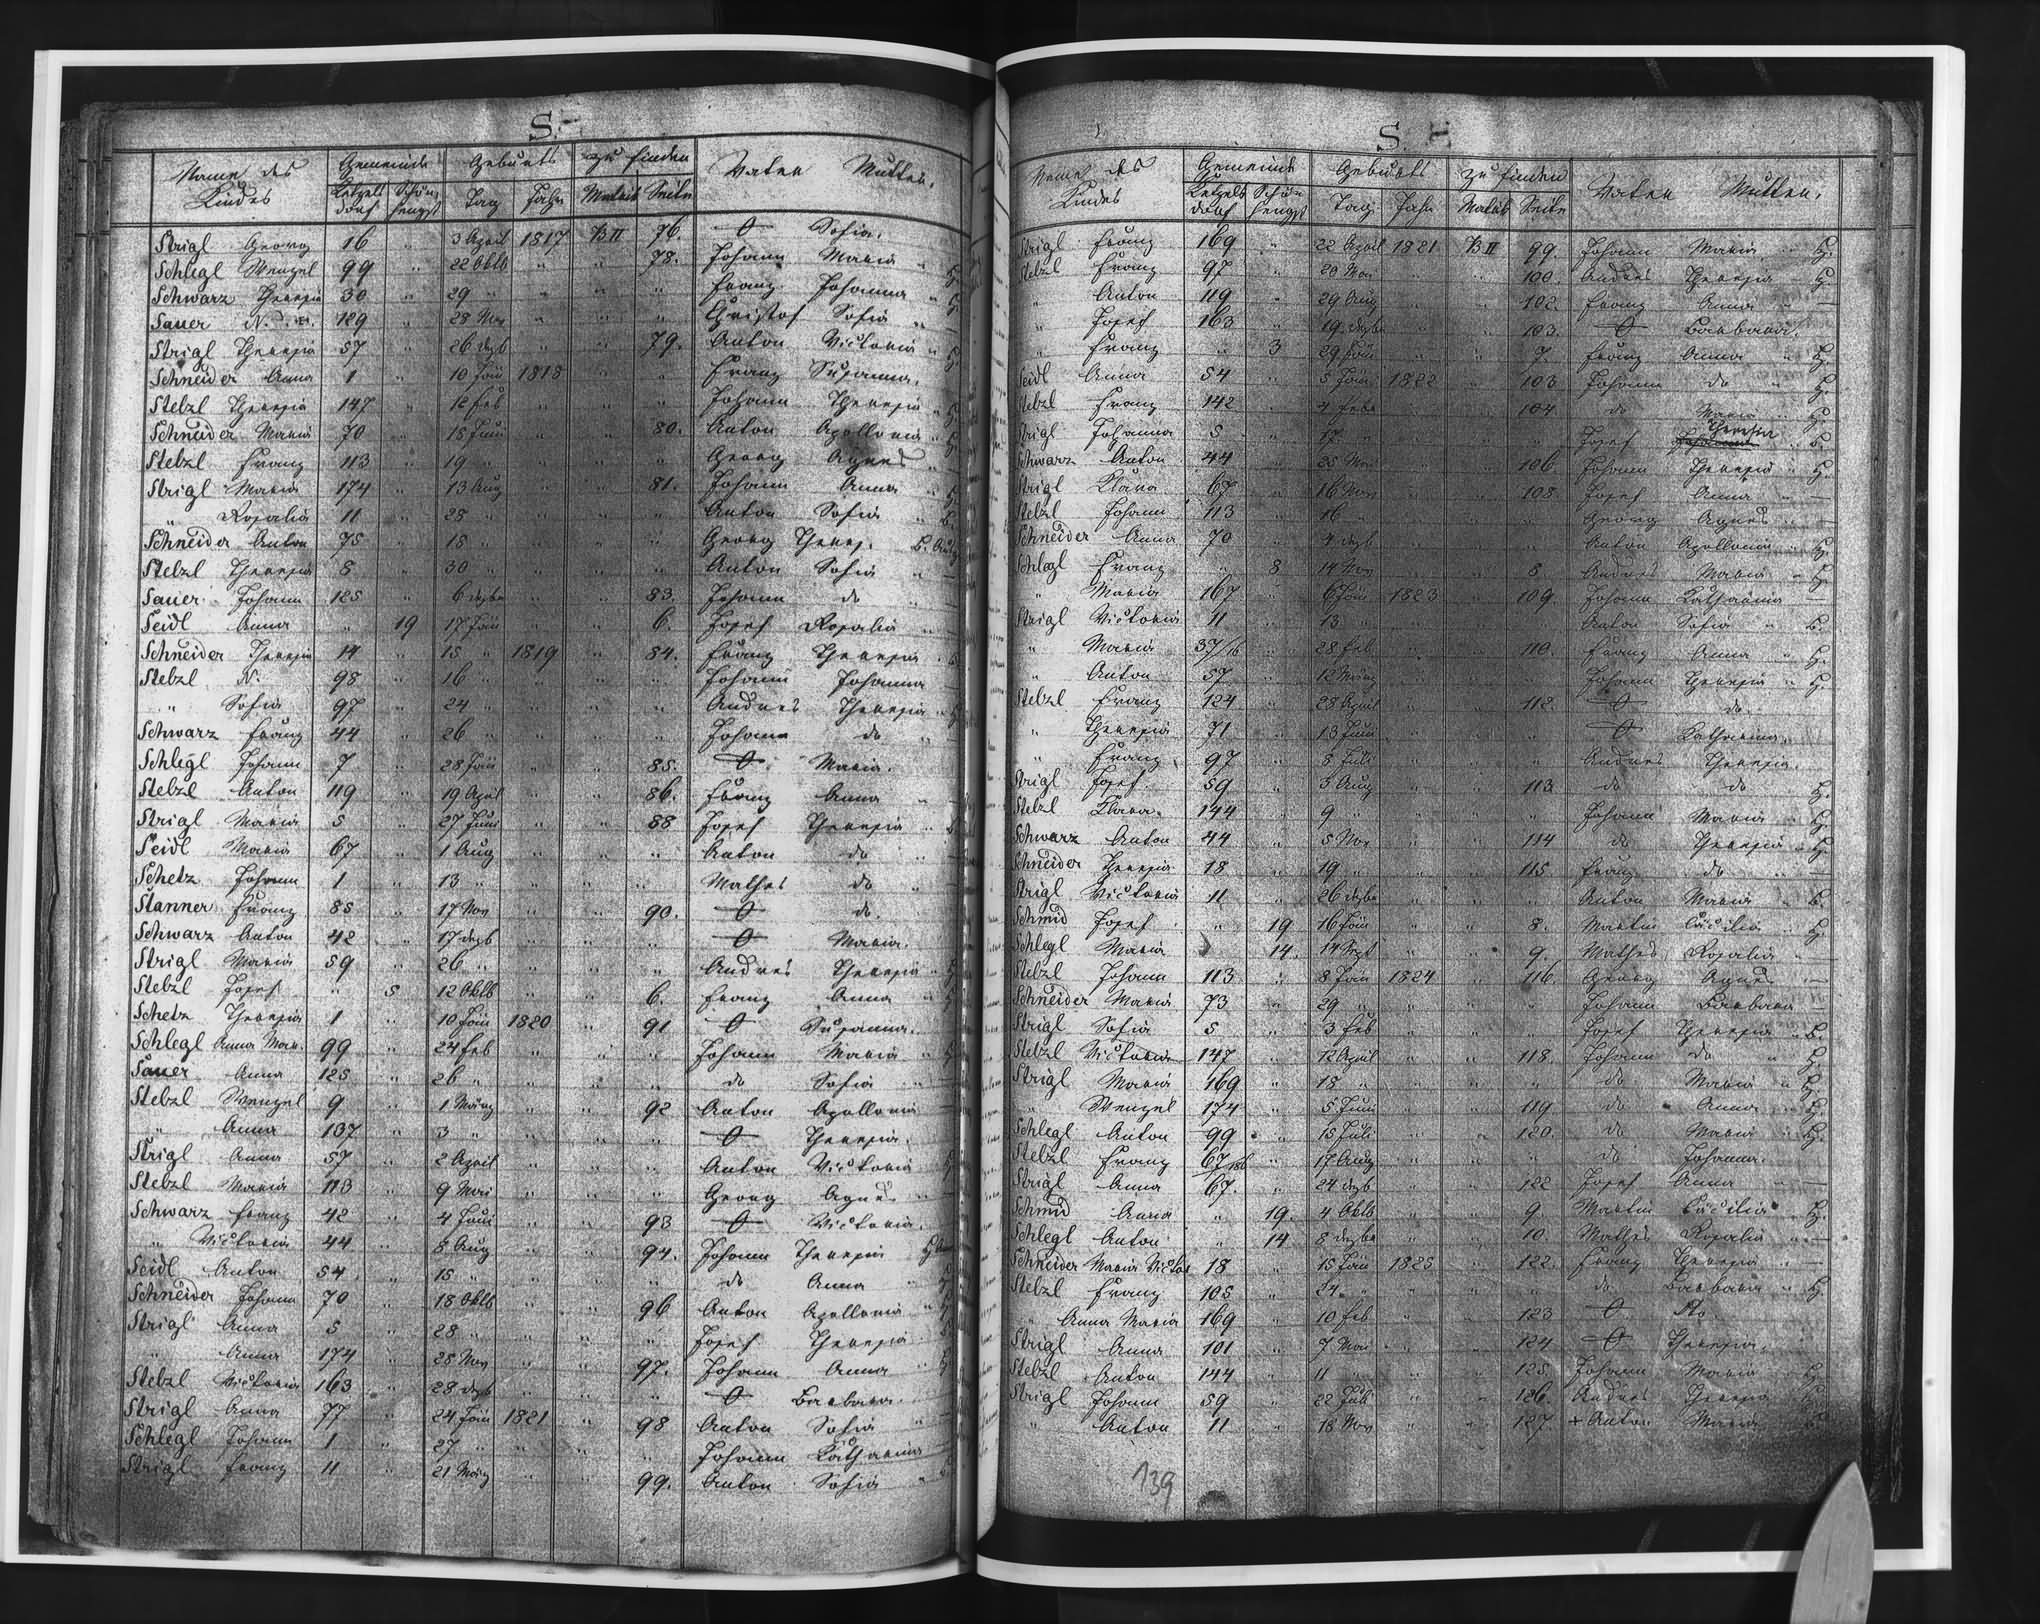 S.
Name des Kindes Gemeinde Geburts zu finden Vater Mutter.
Ketzels dorf Schön hengst Tag Jahr Matrik Seite
Strigl Georg 16 " 3 April 1817 B II 76. O Sofia.
Schlegl Wenzel 99 " 22 Oktb " " 78. Johann Maria "
Schwarz Theresia 30 " 29 " " " " Franz Johanna " H.
Sauer N. 129 " 28 Nov " " " Christof Sofia " —
Strigl Theresia 57 " 26 dezb " " 79. Anton Victoria " H.
Schneider Anna 1 " 10 Jän 1818 " " Franz Susanna.
Stebzl Theresia 147 " 12 Feb " " " Johann Theresia " H.
Schneider Maria 70 " 15 Juni " " 80. Anton Apollonia " H
Stebzl Franz 113 " 19 " " " " Georg Agnes " —
Strigl Maria 174 " 13 Aug " " 81. Johann Anna " H
" Rosalia 11 " 28 " " " " Anton Sofia " B.
Schneider Anton 75 " 18 " " " " Georg Theres.
Stebzl Theresia 8 " 30 " " " " Anton Sofia " —
Sauer Johann 125 " 6 dezbr " " 83. Johann do " —
Seidl Anna " 19 17 Jän " " 6. Josef Rosalia " —
Schneider Theresia 14 " 15 " 1819 " 84. Franz Theresia " B.
Stebzl N. 98 " 16 " " " " Johann Johanna —
" Sofia 97 " 24 " " " " Andres Theresia " H
Schwarz Franz 44 " 26 " " " " Johann do "
Schlegl Johann 7 " 28 Jän " " 85. O Maria.
Stebzl Anton 119 " 19 April " " 86. Franz Anna " —
Strigl Maria 5 " 27 Juni " " 88 Josef Theresia " B.
Seidl Maria 67 " 1 Aug " " " Anton do " —
Schetz Johann 1 " 13 " " " " Mathes do " —
Stanner Franz 85 " 17 Nov " " 90. O do.
Schwarz Anton 42 " 17 dezb " " " O Maria.
Strigl Maria 59 " 26 " " " " Andres Theresia " H
Stebzl Josef " 5 12 Oktb " " 6. Franz Anna " H
Schetz Theresia 1 " 10 Jän 1820 " 91 O Susanna.
Schlegl Anna Mar. 99 " 24 Feb " " " Johann Maria " H
Sauer Anna 125 " 26 " " " " do Sofia " —
Stebzl Wenzel 9 " 1 März " " 92 Anton Apollonia —
" Anna 137 " 3 " " " " O Theresia.
Strigl Anna 57 " 2 April " " " Anton Victoria H
Stebzl Maria 113 " 9 Mai " " " Georg Agnes " —
Schwarz Franz 42 " 4 Juni " " 93 O Victoria.
" Victoria 44 " 8 Aug " " 94. Johann Theresia
Seidl Anton 54 " 15 " " " " do Anna " H
Schneider Johann 70 " 18 Oktb " " 96 Anton Apollonia " H
Strigl Anna 5 " 28 " " " " Josef Theresia " B
" Anna 174 " 28 Nov " " 97. Johann Anna " H
Stebzl Victoria 163 " 28 dezb " " " O Barbara.
Strigl Anna 77 " 24 Jän 1821 " 98 Anton Sofia " —
Schlegl Johann 1 " 27 " " " " Johann Katharina —
Strigl Franz 11 " 21 März " " 99. Anton Sofia " B
S.
Name des Kindes Gemeinde Geburts zu finden Vater Mutter.
Ketzels dorf Schön hengst Tag Jahr Matrik Seite
Strigl Franz 169 " 22 April 1821 B II 99. Johann Maria " H.
Stebzl Franz 97 " 20 Mai " " 100. Andres Theresia " H.
" Anton 119 " 29 Aug " " 102. Franz Anna " —
" Josef 163 " 19 dezbr " " 103. O Barbara.
" Franz " 3 29 Jän " " 7. Franz Anna " H.
Seidl Anna 54 " 5 Jän 1822 " 103 Johann do " H.
Stebzl Franz 142 " 4 Febr " " 104. do Maria " H.
Strigl Johanna 5 " 17 " " " " Josef Theresia " B
Schwarz Anton 44 " 25 Mai " " 106. Johann Theresia " H.
Strigl Klara 67 " 16 Nov " " 108. Josef Anna " —
Stebzl Johann 113 " 16 " " " " Georg Agnes " —
Schneider Anna 70 " 4 dezb " " " Anton Apollonia " H.
Schlegl Franz " 8 14 Nov " " 8. Andres Maria " H.
" Maria 167 " 6 Jän 1823 " 109. Johann Katharina —
Strigl Victoria 11 " 13 " " " " Anton Sofia " B.
" Maria 37/16 " 28 Feb " " 110. Franz Anna " H.
" Anton 57 " 12 März " " " Johann Theresia " H.
Stebzl Franz 124 " 28 April " " 112. O do.
" Theresia 71 " 13 Juni " " " O Katharina.
" Franz 97 " 8 Juli " " " Andres Theresia.
Strigl Josef 59 " 5 Aug " " 113 do do H.
Stebzl Klara 144 " 9 " " " " Johann Maria " H.
Schwarz Anton 44 " 5 Nov " " 114 do Theresia " H.
Schneider Theresia 18 " 19 " " " 115 Franz do " —
Strigl Victoria 11 " 26 dezbr " " " Anton Maria " B.
Schmid Josef " 19 16 Jän " " 8. Martin Cäcilia " H
Schlegl Maria " 14. 14 Sept " " 9. Mathes Rosalia " —
Stebzl Johann 113 " 8 Jän 1824 " 116. Georg Agnes " —
Schneider Maria 73 " 29 " " " " Johann Barbara —
Strigl Sofia 5 " 3 Feb " " " Josef Theresia " B.
Stebzl Victoria 147 " 12 April " " 118. Johann do " H.
Strigl Maria 169 " 18 " " " " do Maria " H.
" Wenzel 174 " 5 Juni " " 119. do Anna " H.
Schlegl Anton 99 " 15 Juli " " 120. do Maria " H.
Stebzl Franz 67/186 " 17 Aug " " " do Johanna.
Strigl Anna 67. " 24 dezb " " 122 Josef Anna " —
Schmid Anna " 19. 4 Oktb " " 9. Martin Cäcilia " H.
Schlegl Anton " 14 8 dezbr " " 10. Mathes Rosalia " —
Schneider Maria Victor 18 " 15 Jän 1825 " 122. Franz Theresia " —
Stebzl Franz 105 " 24. " " " " do Barbara " H.
" Anna Maria 169 " 10 Feb " " 123 O do
Strigl Anna 101 " 7 Mai " " 124 O Theresia.
Stebzl Anton 144 " 11 " " " 125. Johann Maria " H.
Strigl Johann 59 " 22 Juli " " 126 Andres Theresia " H.
" Anton 11 " 18 Nov " " 127. + Anton Maria " B.
139